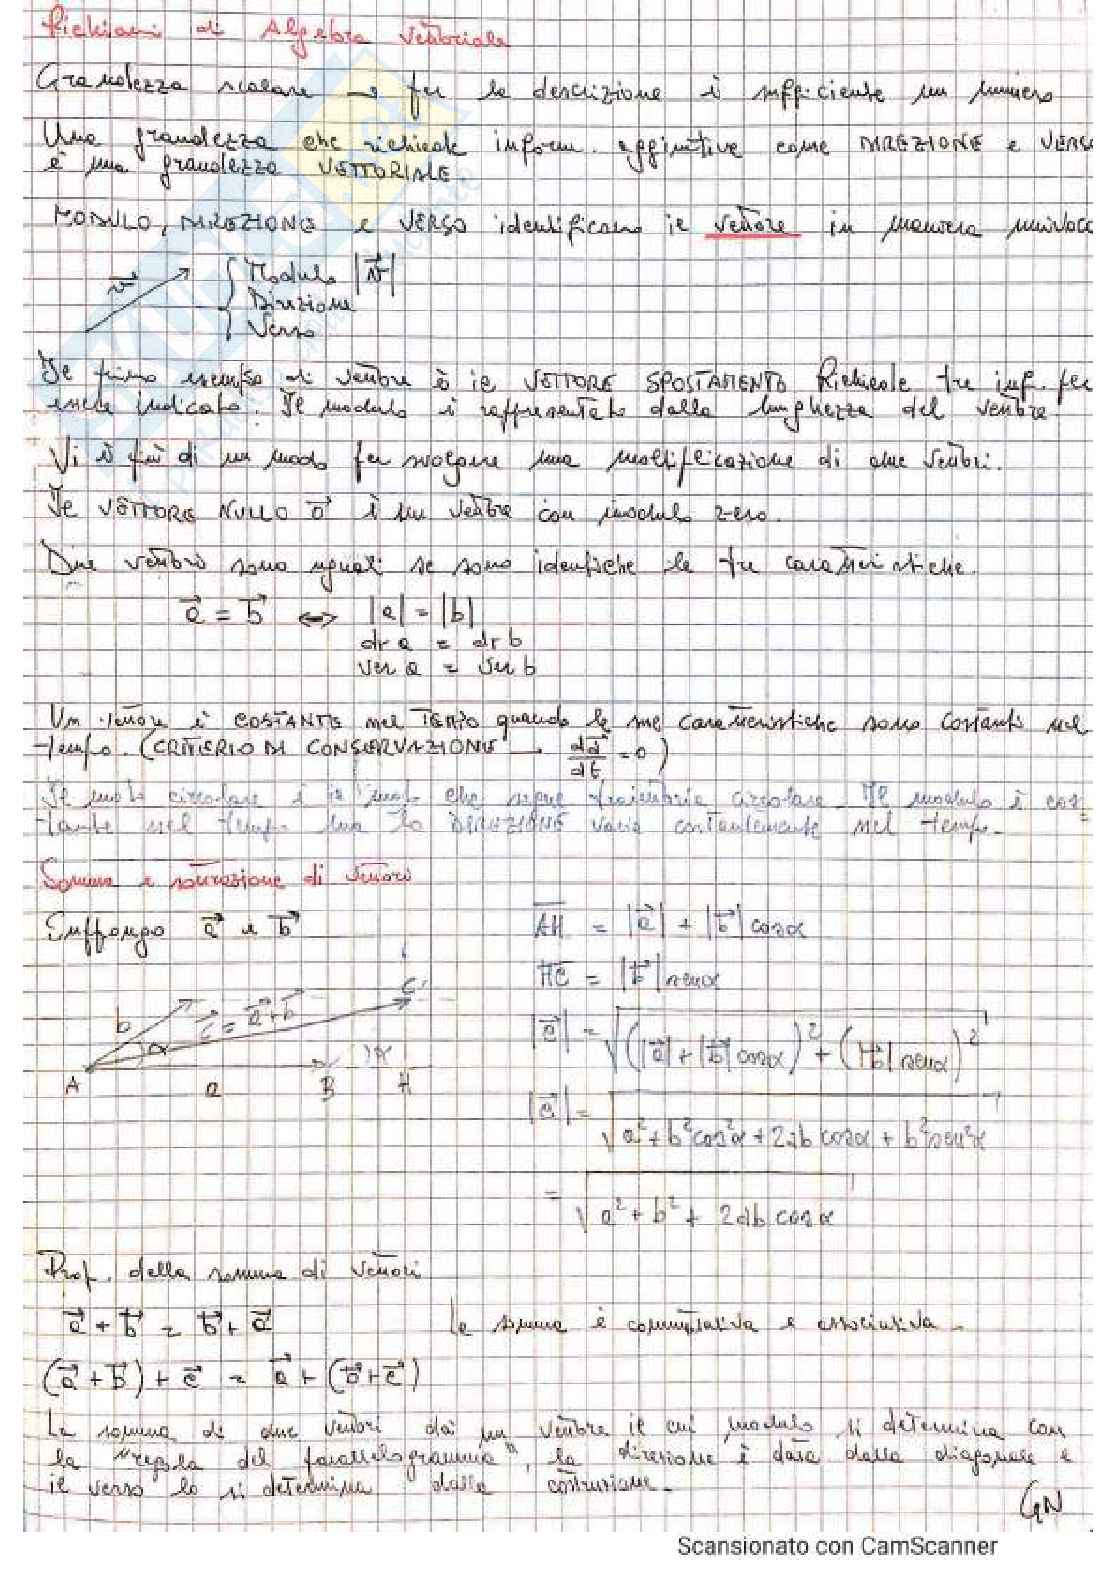 Richiami di Algebra Vettoriale
Grandezza scalare → per la descrizione è sufficiente un numero
Una grandezza che richiede inform. aggiuntive come DIREZIONE e VERSO
è una grandezza VETTORIALE.
MODULO, DIREZIONE e VERSO identificano il vettore in maniera univoca
v⃗ { Modulo |v⃗|
Direzione
Verso
Il primo esempio di vettore è il VETTORE SPOSTAMENTO Richiede tre inf. per
essere indicato. Il modulo è rappresentato dalla lunghezza del vettore.
Vi è più di un modo per svolgere una moltiplicazione di due vettori.
Il VETTORE NULLO 0⃗ è un vettore con modulo zero.
Due vettori sono uguali se sono identiche le tre caratteristiche.
a⃗ = b⃗ ⟺ |a| = |b|
dr a = dr b
ver a = ver b
Un vettore è COSTANTE nel TEMPO quando le sue caratteristiche sono costanti nel
tempo. (CRITERIO DI CONSERVAZIONE → da⃗/dt = 0)
Il moto circolare è il moto che segue traiettoria circolare. Il modulo è cos-
tante nel tempo ma la DIREZIONE varia costantemente nel tempo.
Somma e sottrazione di vettori
Suppongo a⃗ e b⃗
AH = |a⃗| + |b⃗| cosα
HC = |b⃗| senα
b c⃗ = a⃗+b⃗ C
α α
A a B H
|c⃗| = √((|a⃗| + |b⃗| cosα)² + (|b⃗| senα)²)
|c⃗| = √(a² + b²cos²α + 2ab cosα + b²sen²α)
= √(a² + b² + 2ab cosα)
Prop. della somma di vettori
a⃗ + b⃗ = b⃗ + a⃗ La somma è commutativa e associativa.
(a⃗ + b⃗) + c⃗ = a⃗ + (b⃗ + c⃗)
La somma di due vettori dà un vettore il cui modulo si determina con
la "regola del parallelogramma", la direzione è data dalla diagonale e
il verso lo si determina dalla costruzione.
GN
Scansionato con CamScanner